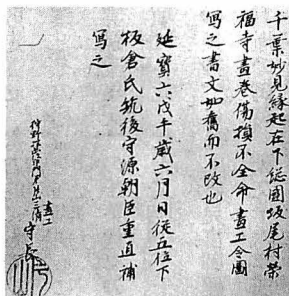 千葉妙見縁起在下総國坂尾村榮
福寺畫巻傷損不全命畫工令圖
寫之書文如舊而不改也
延寶六戊午歳六月日從五位下
板倉氏筑後守源朝臣重直補
寫之
畫工
狩野
守